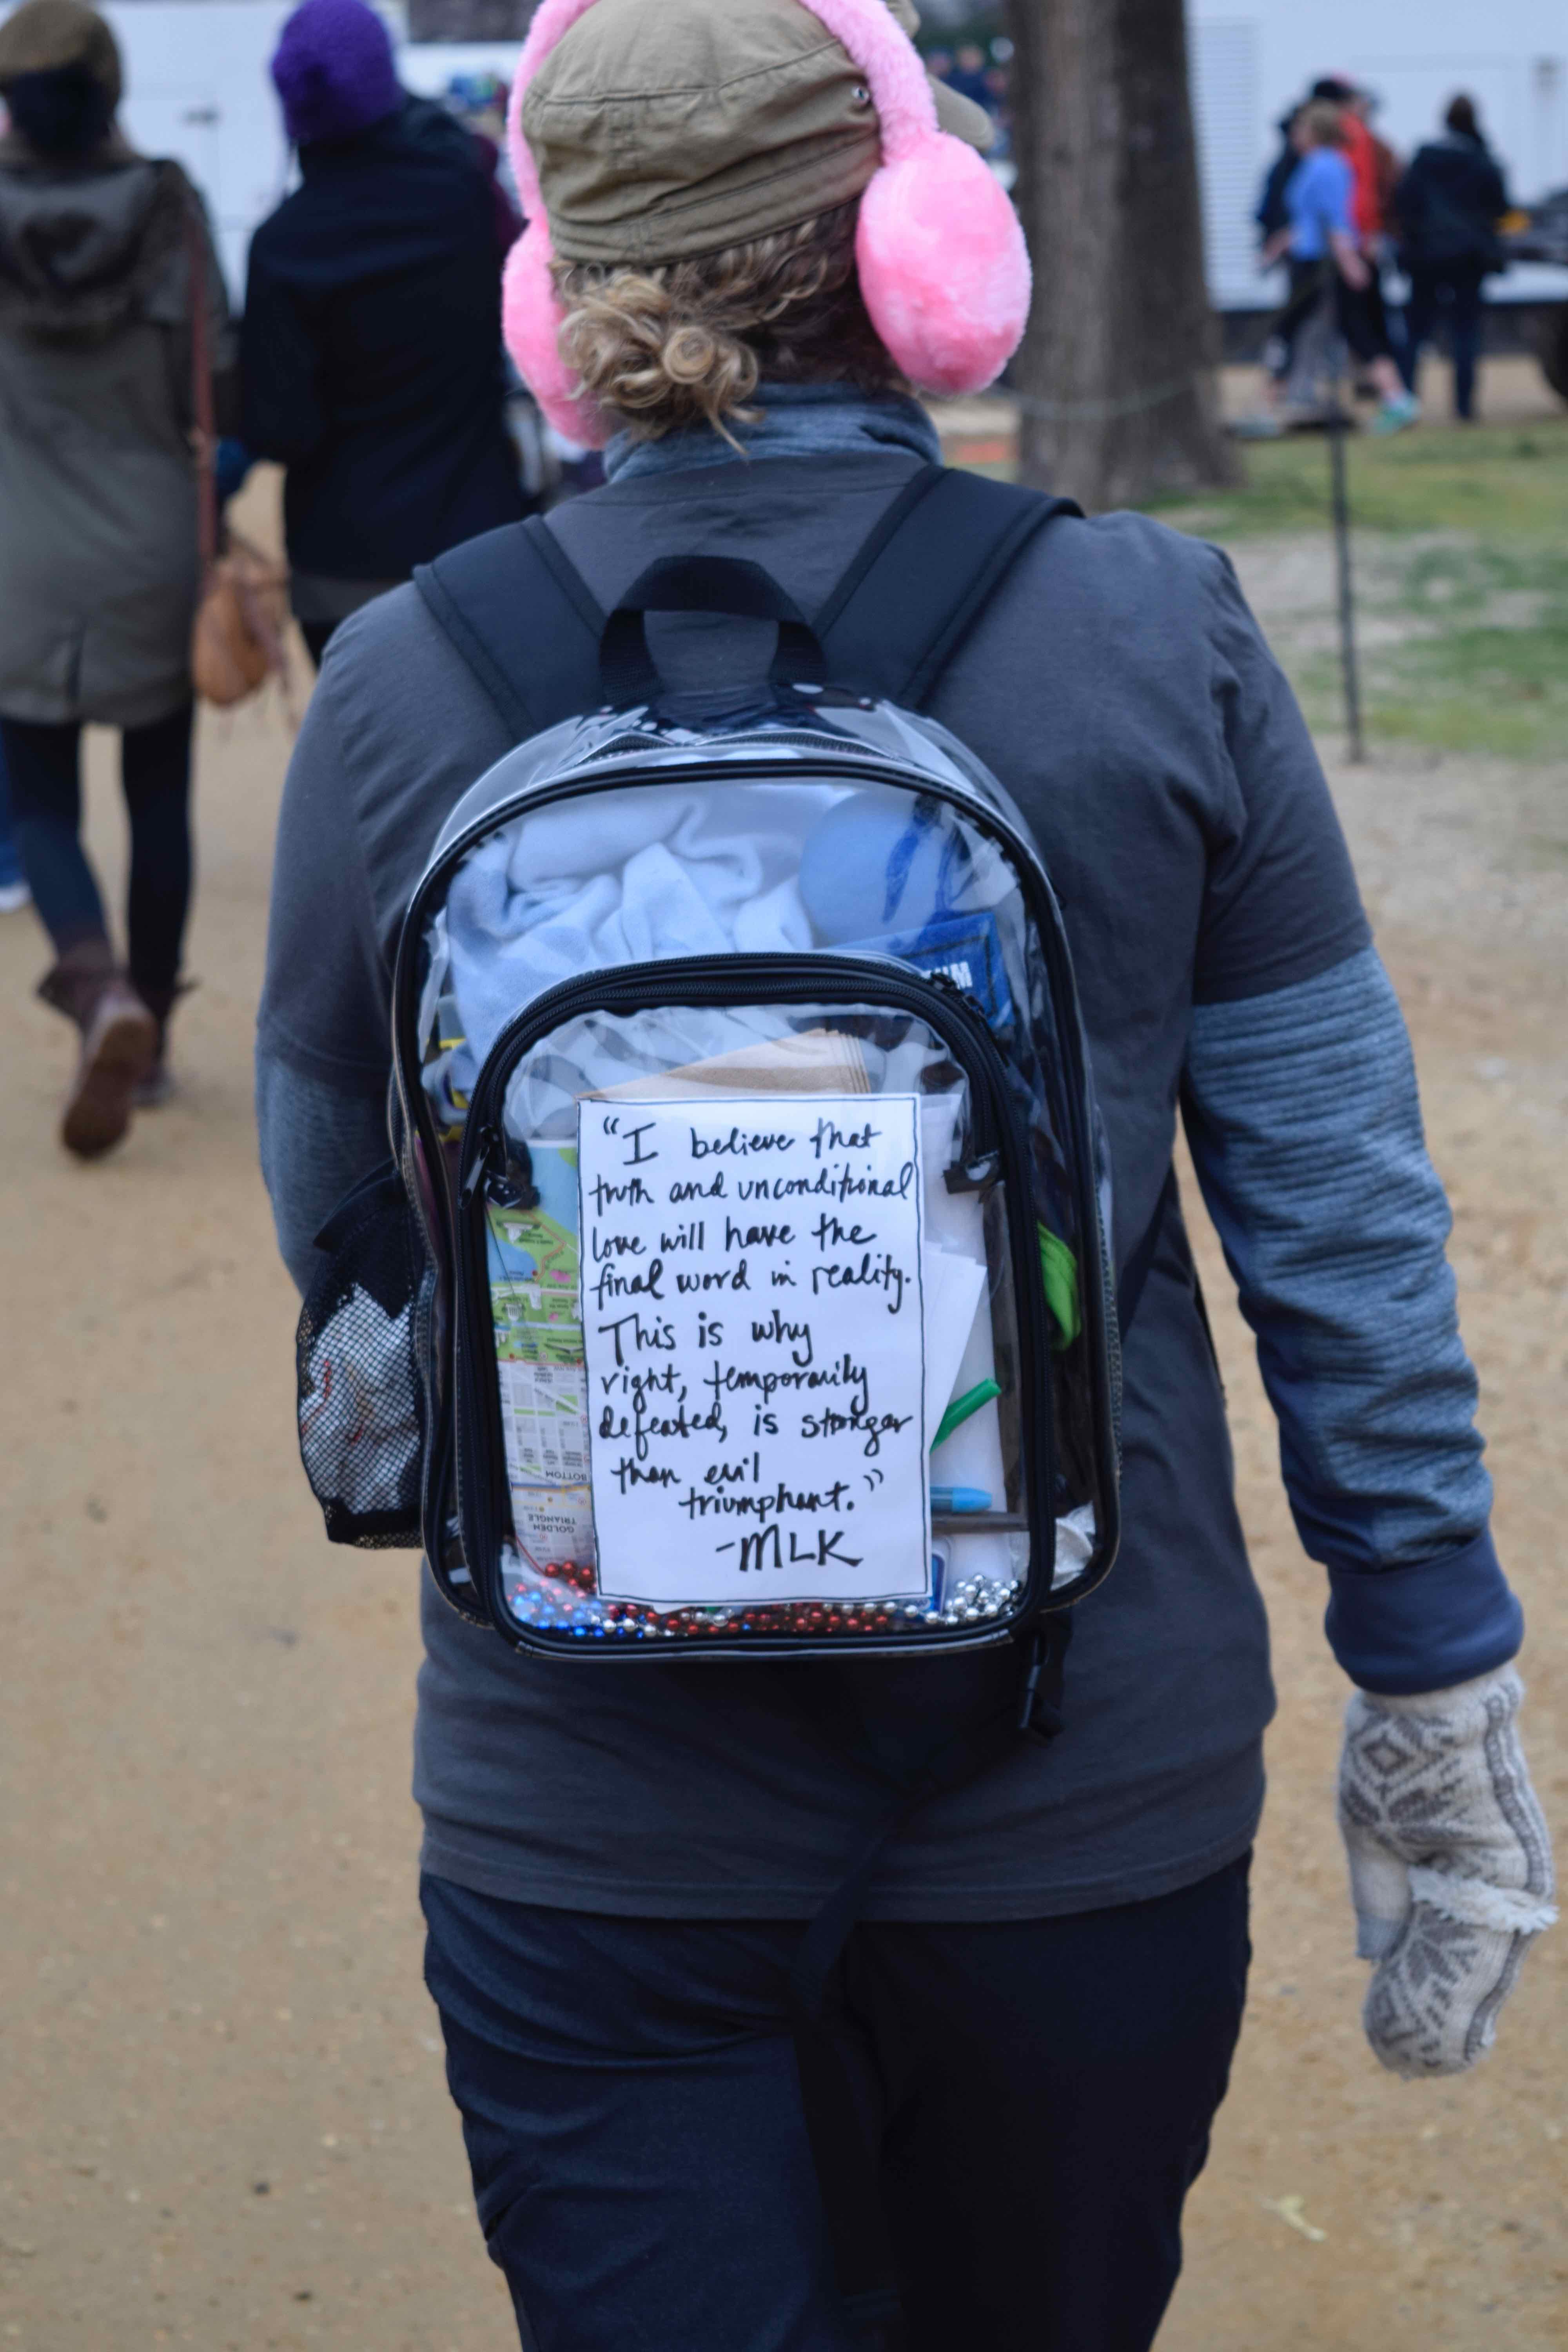 "I believe that
truth and unconditional
love will have the
final word in reality.
This is why
right, temporarily
defeated, is stronger
than evil
triumphant."
-MLK
BOTTOM
GOLDEN
TRIANGLE